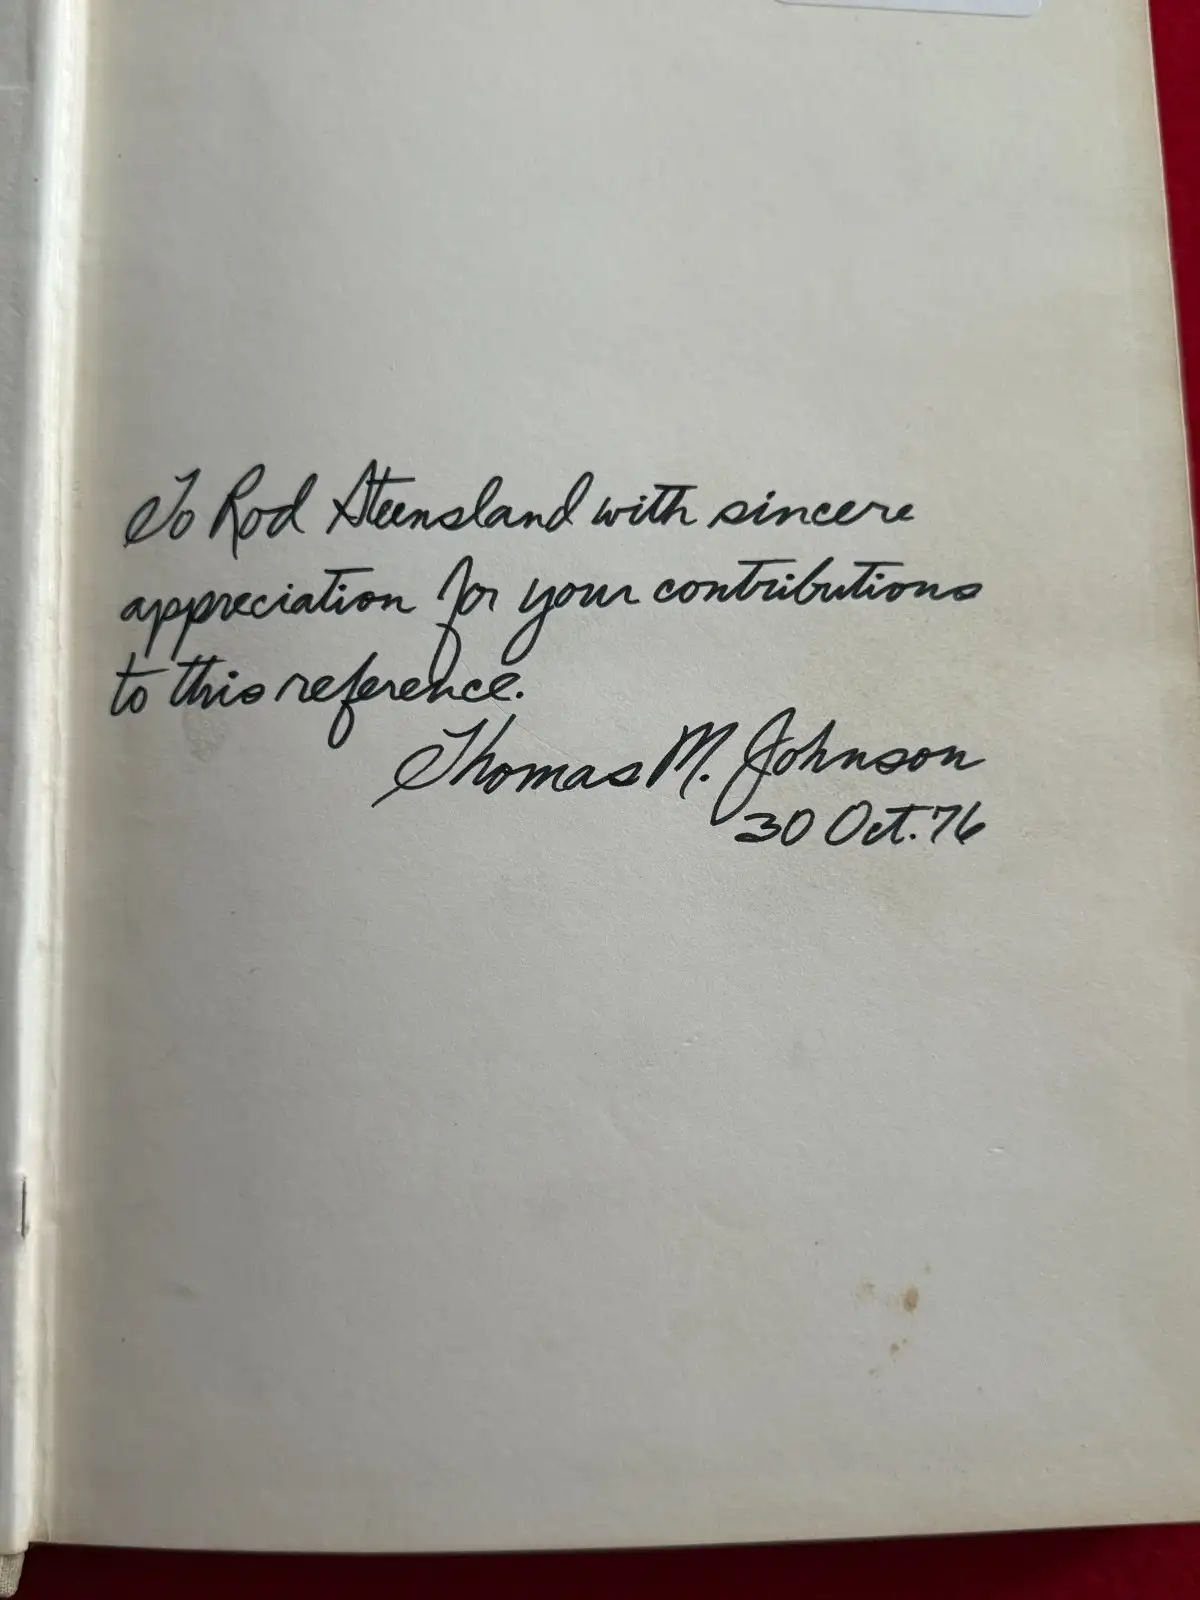 To Rod Steensland with sincere
appreciation for your contributions
to this reference.
Thomas M. Johnson
30 Oct. 76